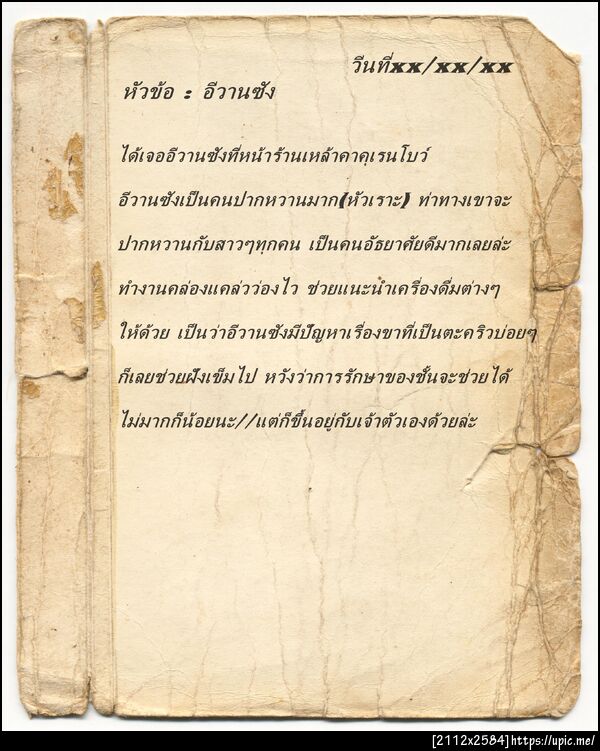 วันที่xx/xx/xx
หัวข้อ : อีวานซัง
ได้เจออีวานซังที่หน้าร้านเหล้าคาคุเรนโบว์
อีวานซังเป็นคนปากหวานมาก(หัวเราะ) ท่าทางเขาจะ
ปากหวานกับสาวๆทุกคน เป็นคนอัธยาศัยดีมากเลยล่ะ
ทำงานคล่องแคล่วว่องไว ช่วยแนะนำเครื่องดื่มต่างๆ
ให้ด้วย เป็นว่าอีวานซังมีปัญหาเรื่องขาที่เป็นตะคริวบ่อยๆ
ก็เลยช่วยฝังเข็มไป หวังว่าการรักษาของชั้นจะช่วยได้
ไม่มากก็น้อยนะ//แต่ก็ขึ้นอยู่กับเจ้าตัวเองด้วยล่ะ
[2112x2584]https://upic.me/